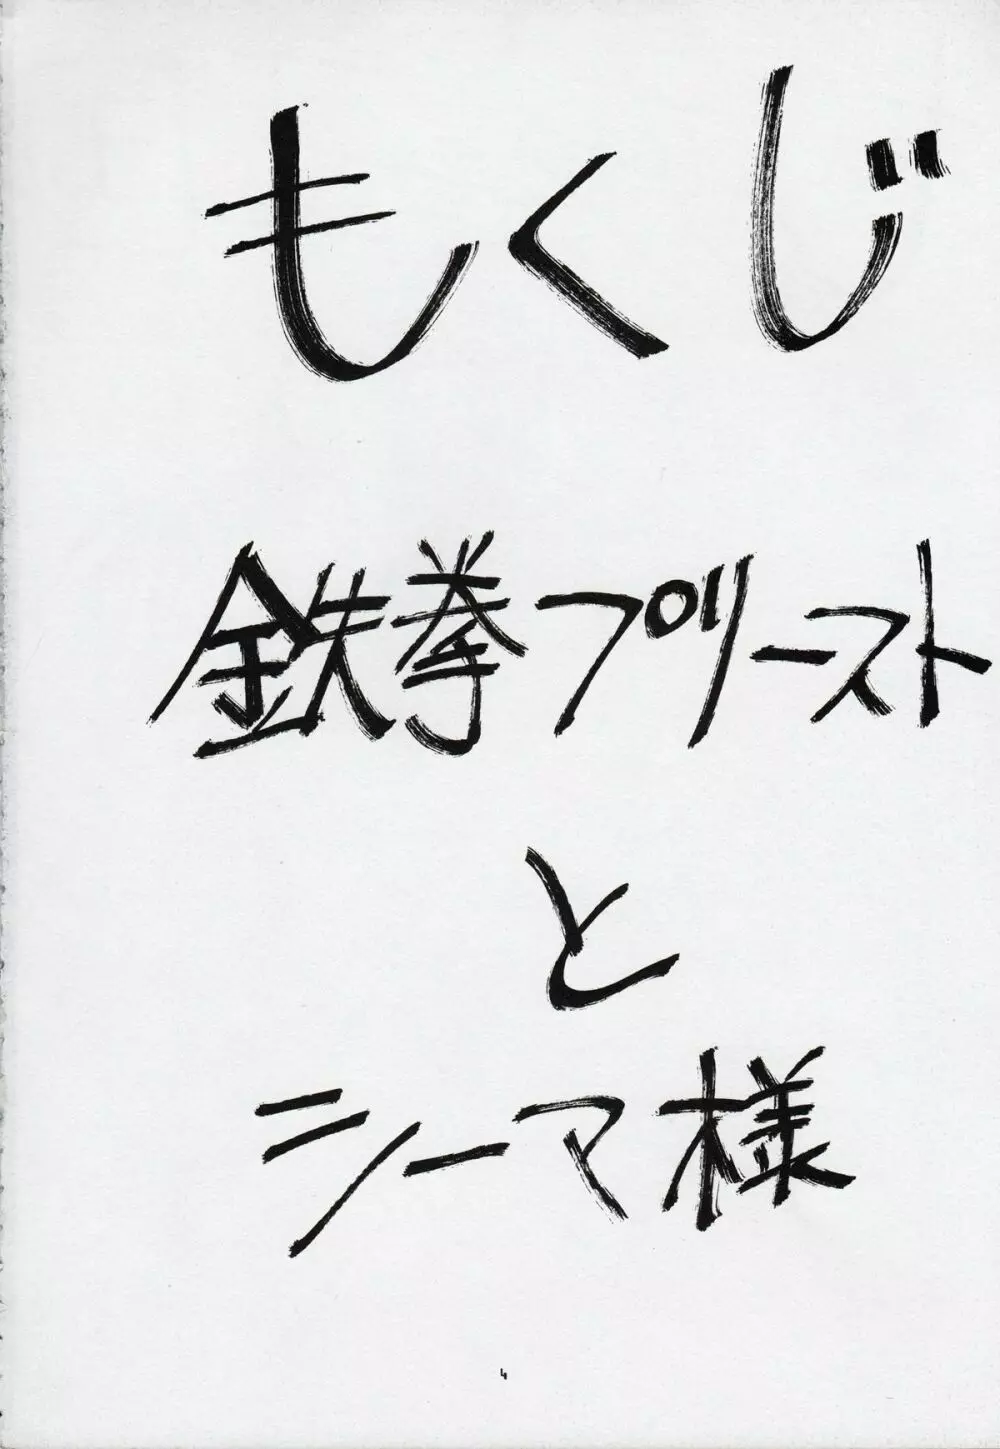 もくじ
鉄拳プリースト
と
シーマ様
4